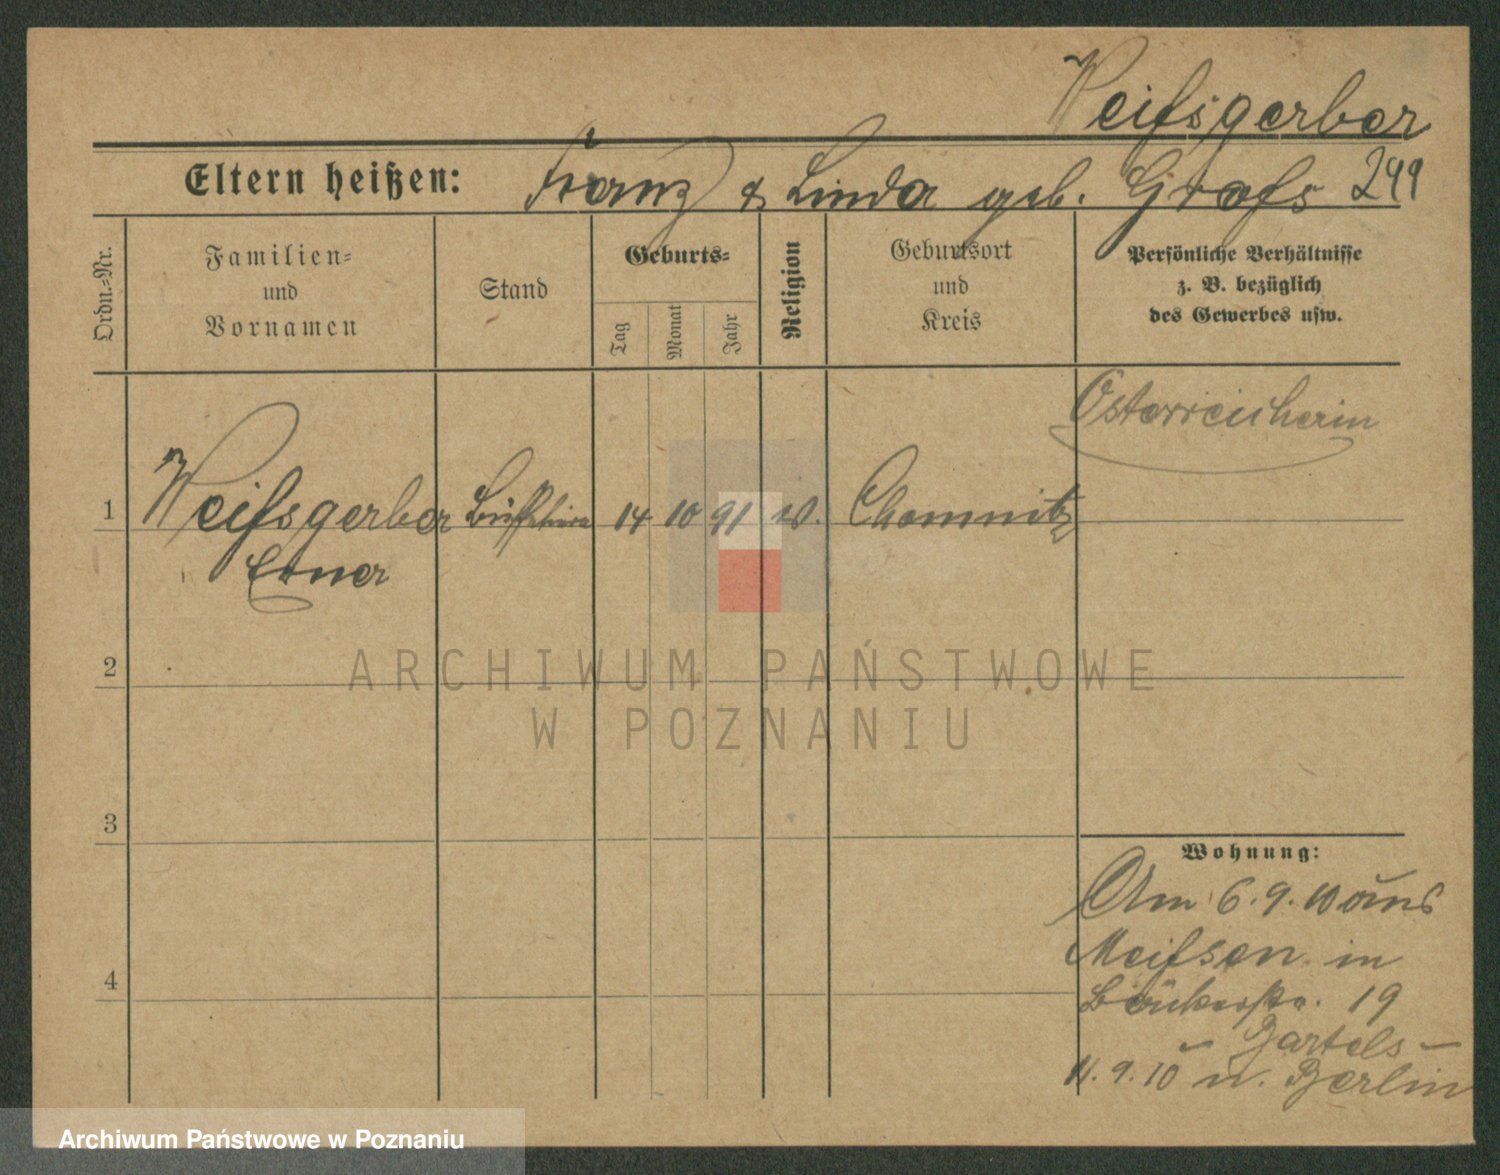 Weißgerber
Eltern heißen: Franz & Linda geb. Graß 299
Ordn.-Nr.
Familien-
und
Vornamen
Stand
Geburts-
Tag
Monat
Jahr
Religion
Geburtsort
und
Kreis
Persönliche Verhältnisse
z. B. bezüglich
des Gewerbes usw.
Österreicherin
1 Weißgerber 14 10 91 Chemnitz
Erna
2
3
4
Wohnung:
Am 6.9.10 aus
Meißen in
19
Bartels
11.9.10 n. Berlin
ARCHIWUM PAŃSTWOWE
W POZNANIU
Archiwum Państwowe w Poznaniu